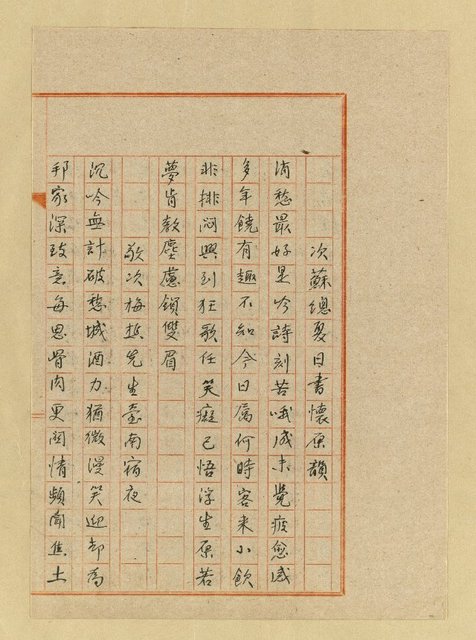 次蘇總夏日書懷原韻
消愁最好是吟詩刻苦哦成未覺疲愈感
多年饒有趣不知今日屬何時客來小飲
非排悶興到狂歌任笑癡已悟浮生原若
夢肯教塵慮鎖雙眉
敬次梅樵先生臺南宿夜
沉吟無計破愁城酒力猶微漫笑迎却為
邦家深致意每思骨肉更關情頻聞焦土